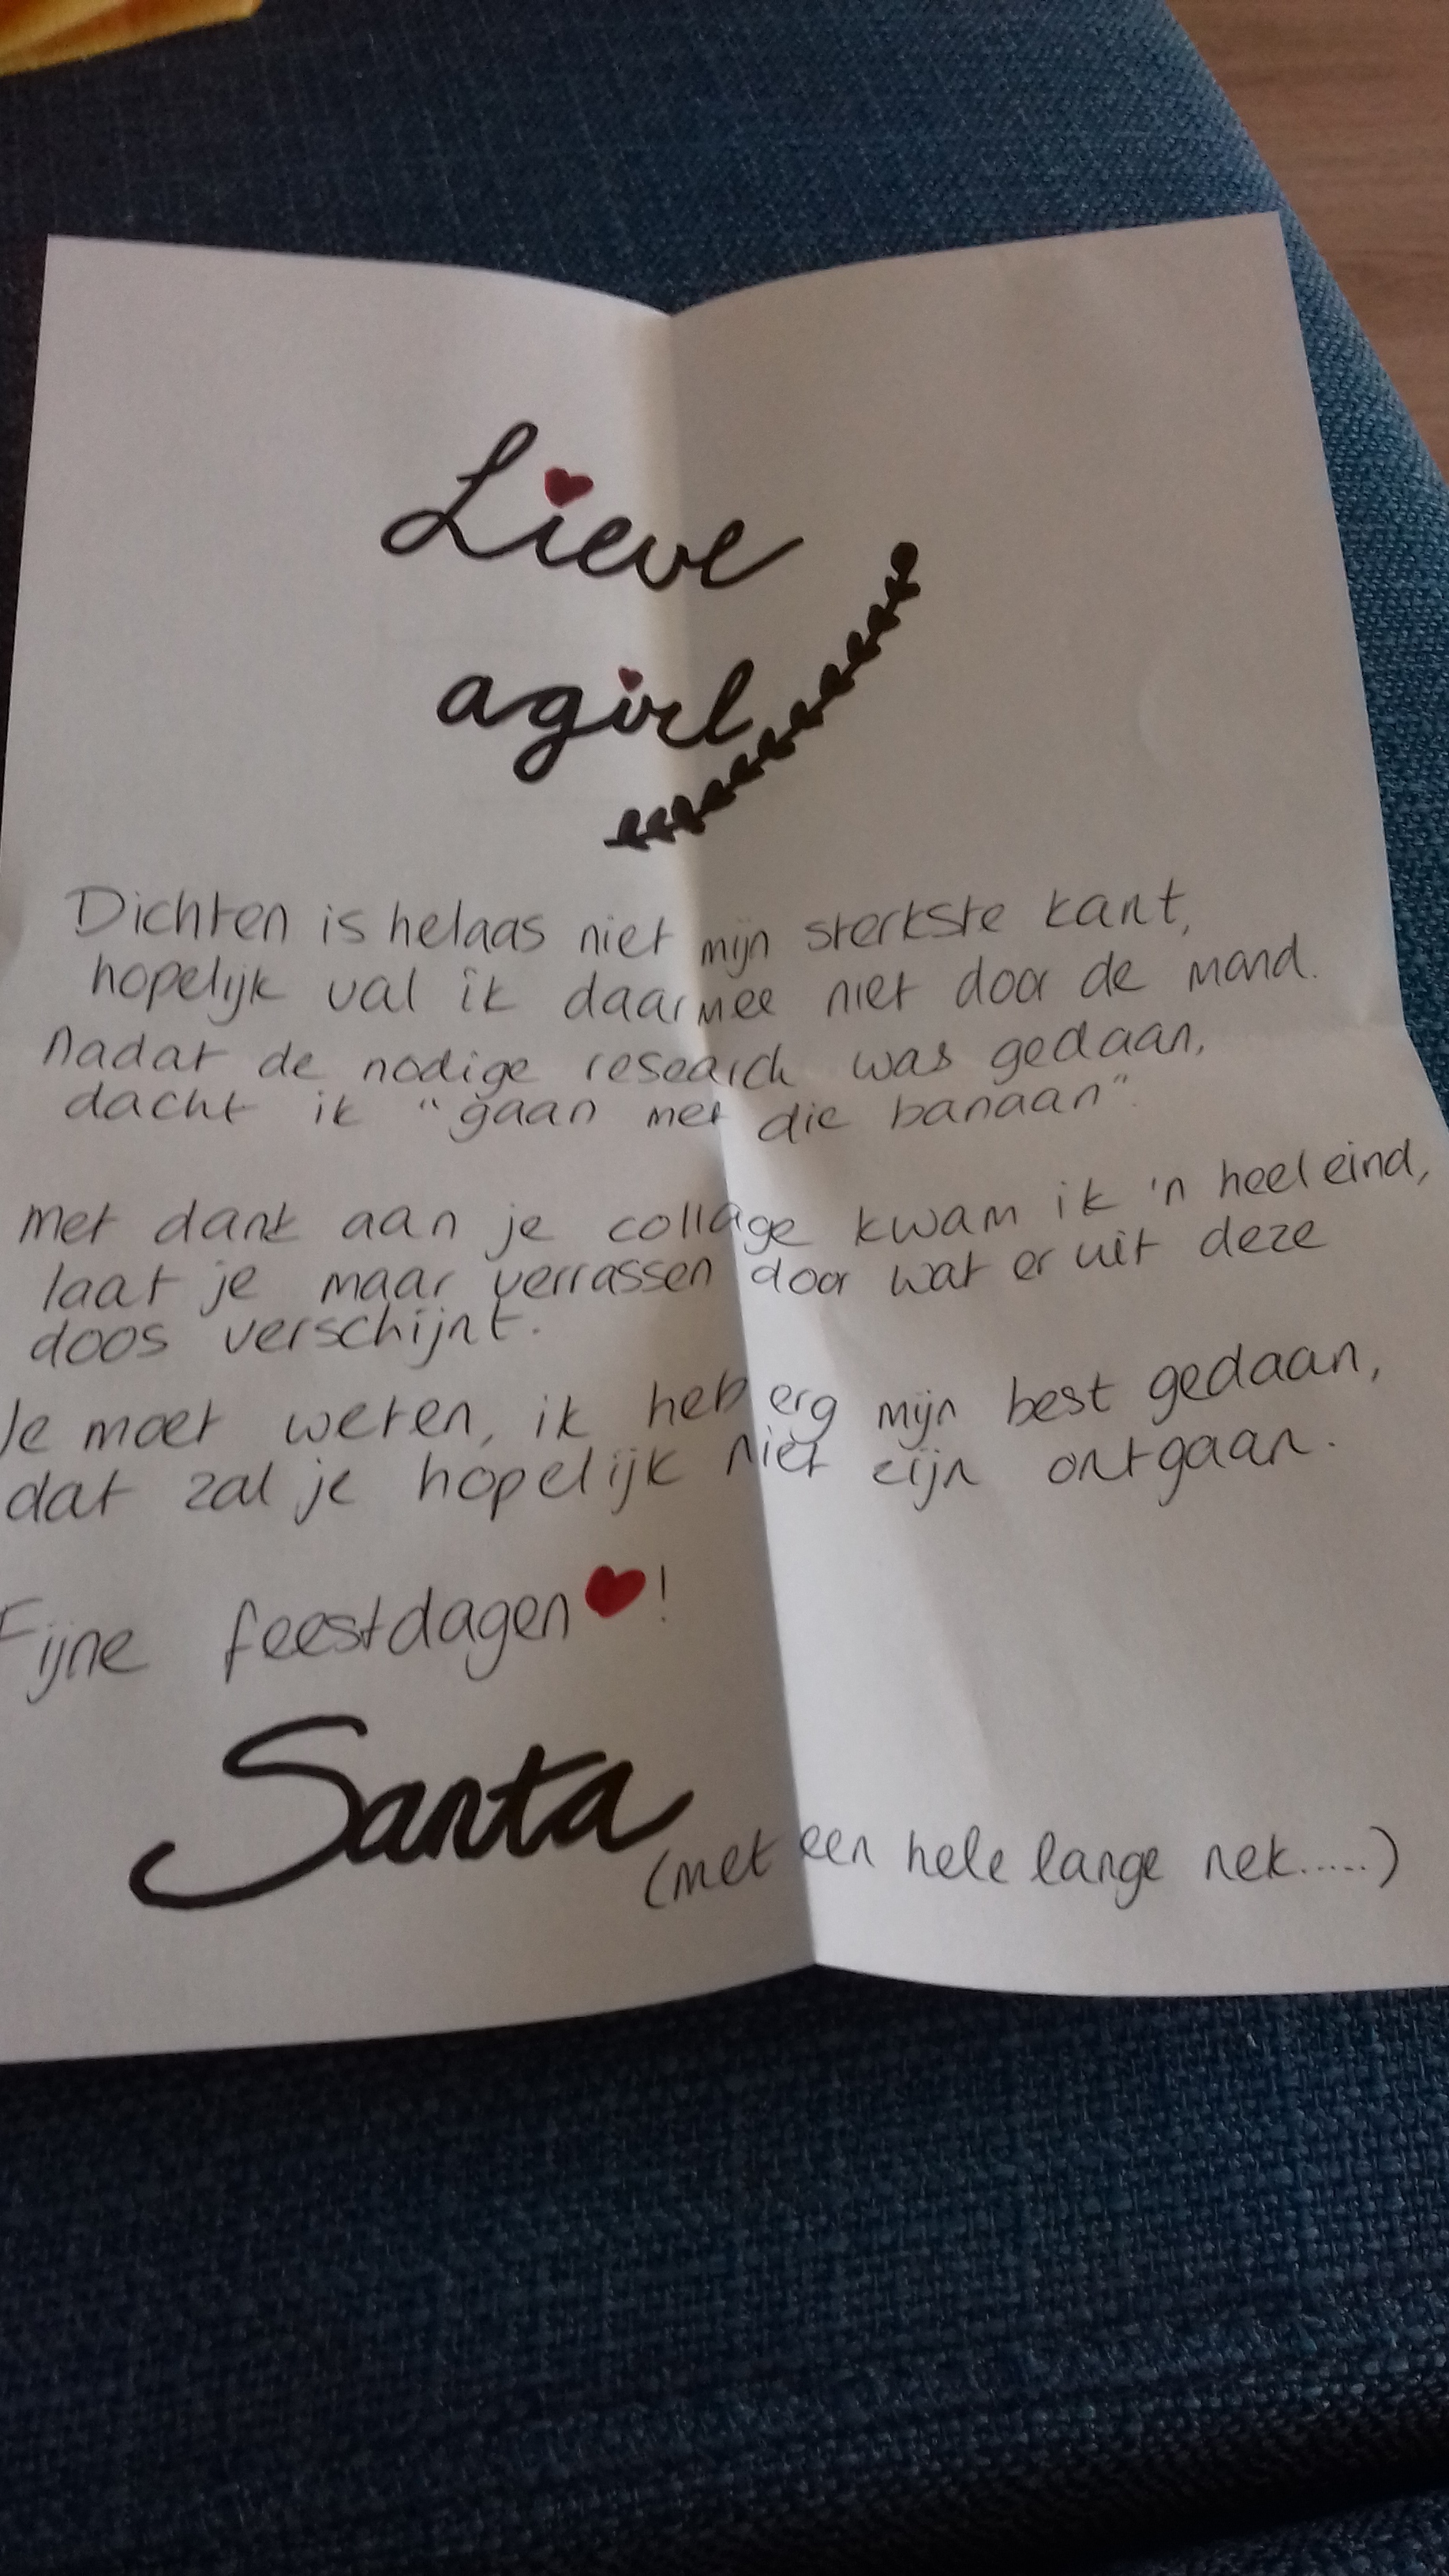 Lieve
agirl
Dichten is helaas niet mijn sterkste kant,
hopelijk val ik daarmee niet door de mand.
Nadat de nodige research was gedaan,
dacht ik "gaan met die banaan".
Met dank aan je collage kwam ik 'n heel eind,
laat je maar verrassen door wat er uit deze
doos verschijnt.
Je moet weten, ik heb erg mijn best gedaan,
dat zal je hopelijk niet zijn ontgaan.
Fijne feestdagen ♥!
Santa
(met een hele lange nek.....)